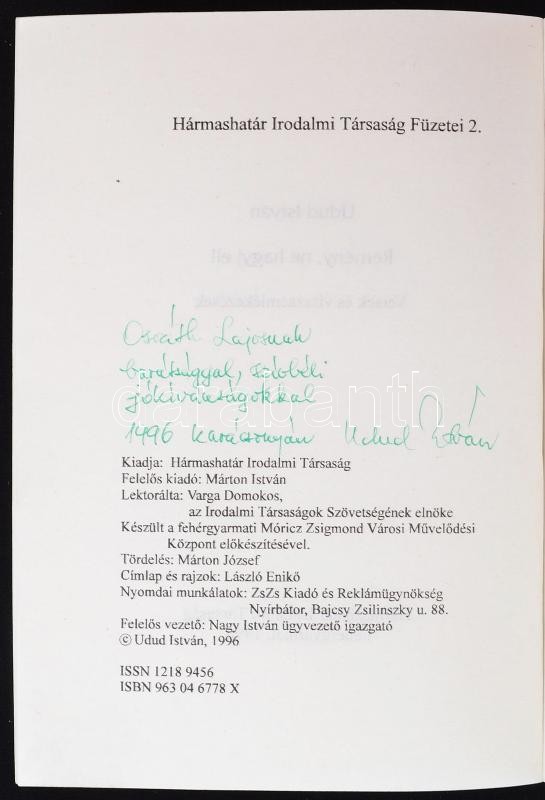 Hármashatár Irodalmi Társaság Füzetei 2.
Udud István
Remény, ne hagyj el!
Lajosnak
barátsággal, szívbéli
jókívánságokkal
darabanth
1996 karácsonyán Udud István
Kiadja: Hármashatár Irodalmi Társaság
Felelős kiadó: Márton István
Lektorálta: Varga Domokos,
az Irodalmi Társaságok Szövetségének elnöke
Készült a fehérgyarmati Móricz Zsigmond Városi Művelődési
Központ előkészítésével.
Tördelés: Márton József
Címlap és rajzok: László Enikő
Nyomdai munkálatok: ZsZs Kiadó és Reklámügynökség
Nyírbátor, Bajcsy Zsilinszky u. 88.
Felelős vezető: Nagy István ügyvezető igazgató
© Udud István, 1996
ISSN 1218 9456
ISBN 963 04 6778 X